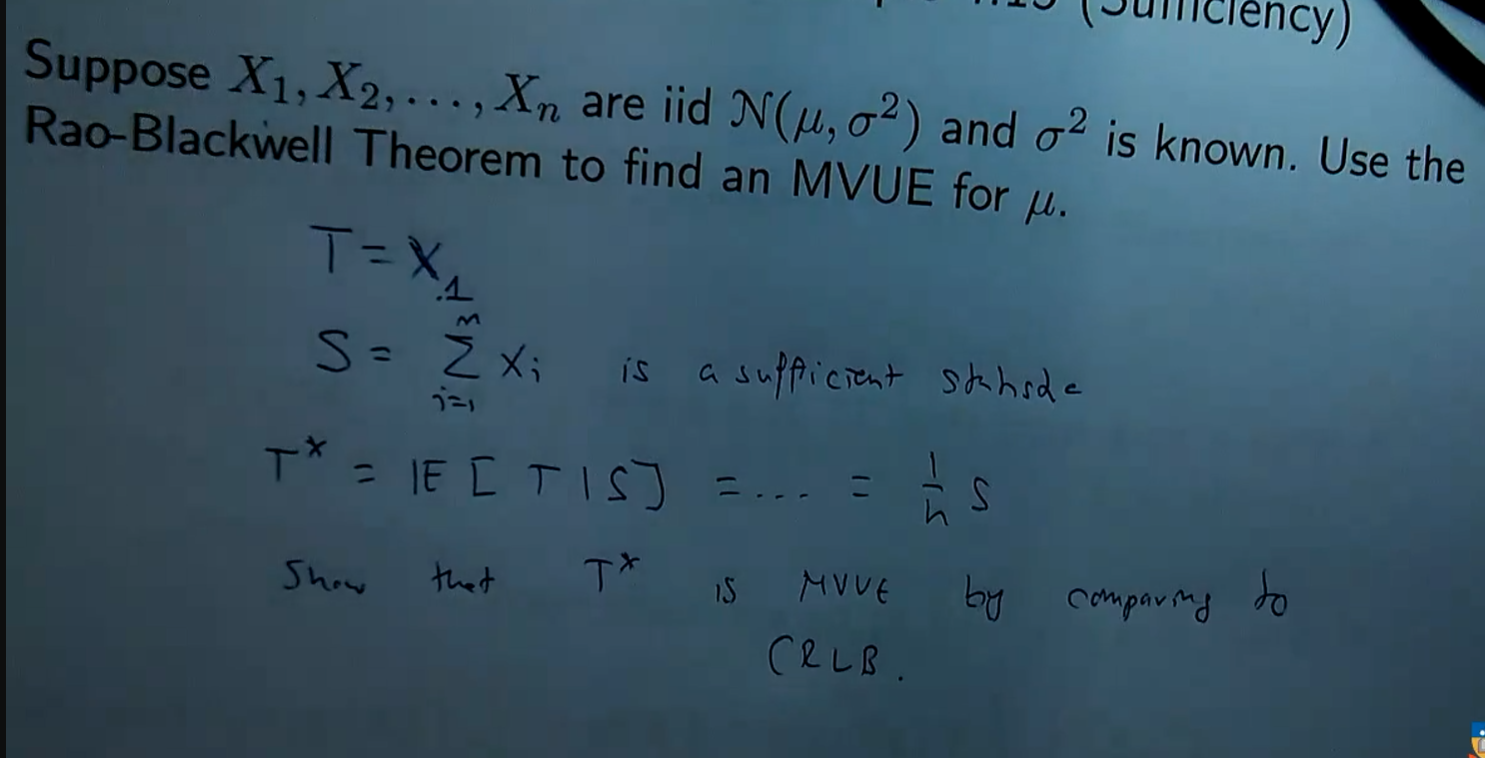 (Sufficiency)
Suppose X₁, X₂, . . . , Xₙ are iid N(μ, σ²) and σ² is known. Use the
Rao-Blackwell Theorem to find an MVUE for μ.
T = X₁
S = ∑ᵢ₌₁ⁿ Xᵢ is a sufficient
T* = IE [ T | S ] = ... = 1/n S
Show that T* is MVUE by comparing to
CRLB.